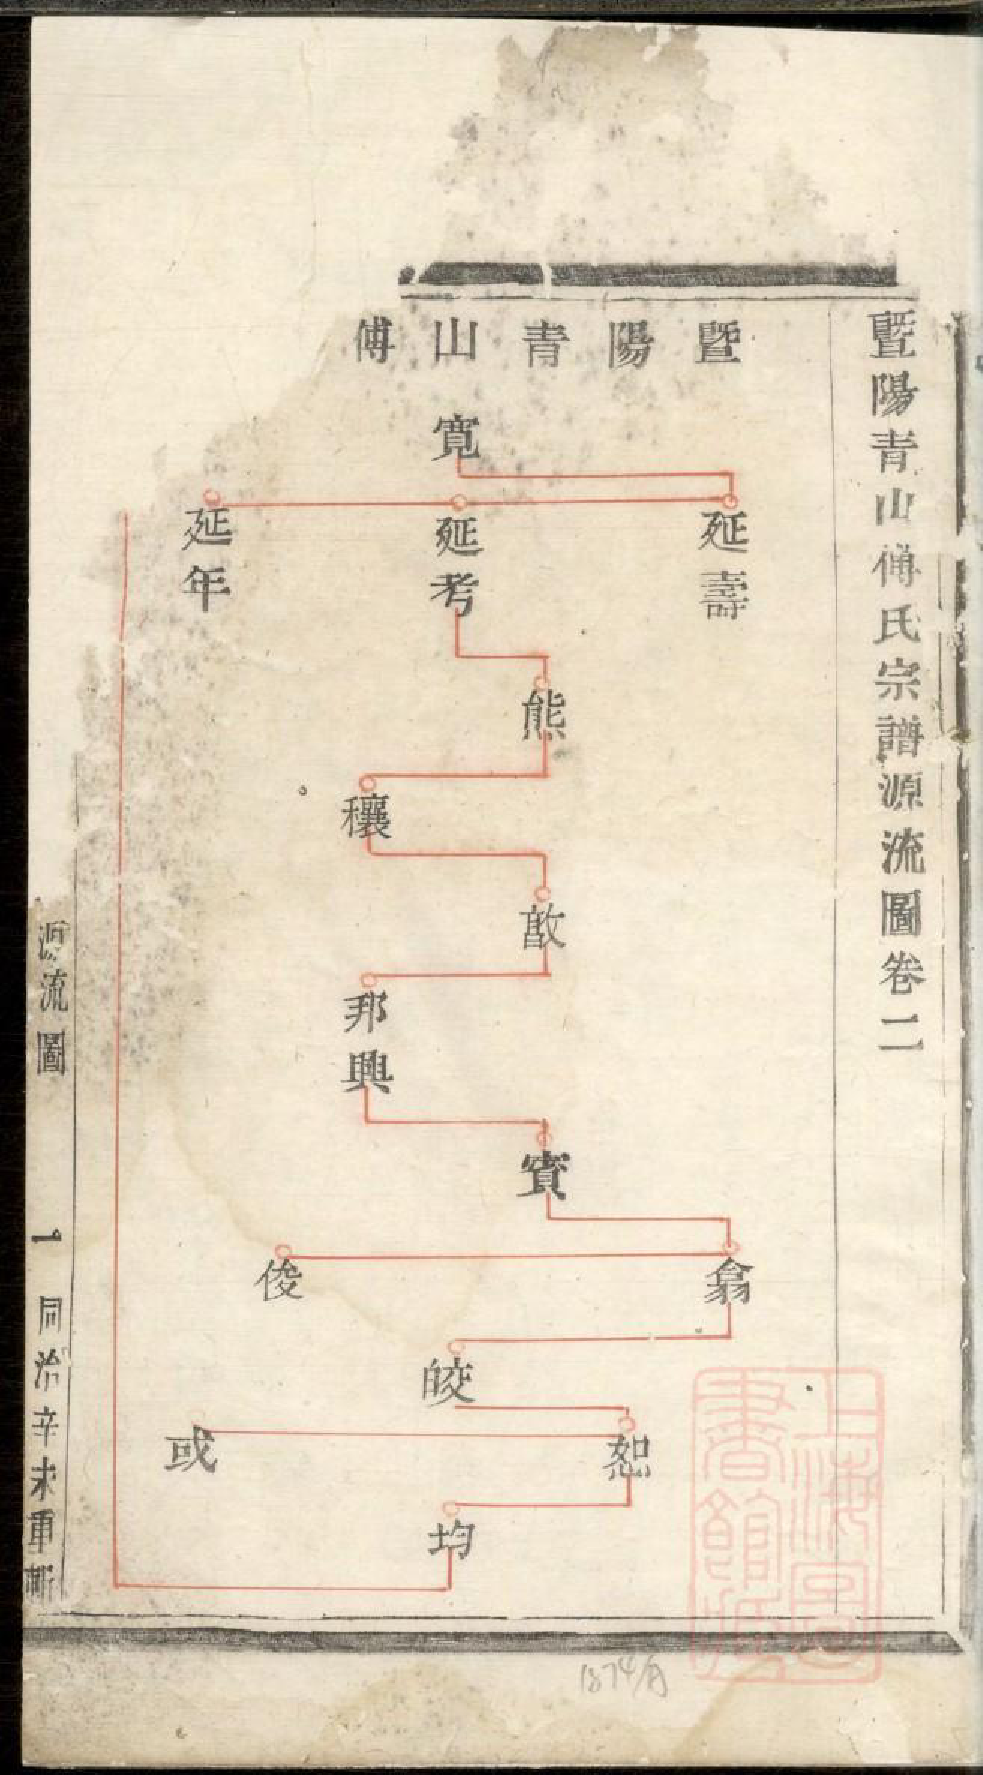 暨陽青山傅氏宗譜源流圖卷二
暨陽青山傅
寬
延壽
延考
延年
熊
穰
敔
邦興
賓
翕
俊
皎
恕
或
均
源流圖
一
同治辛未重
上海圖書館藏
1874/6